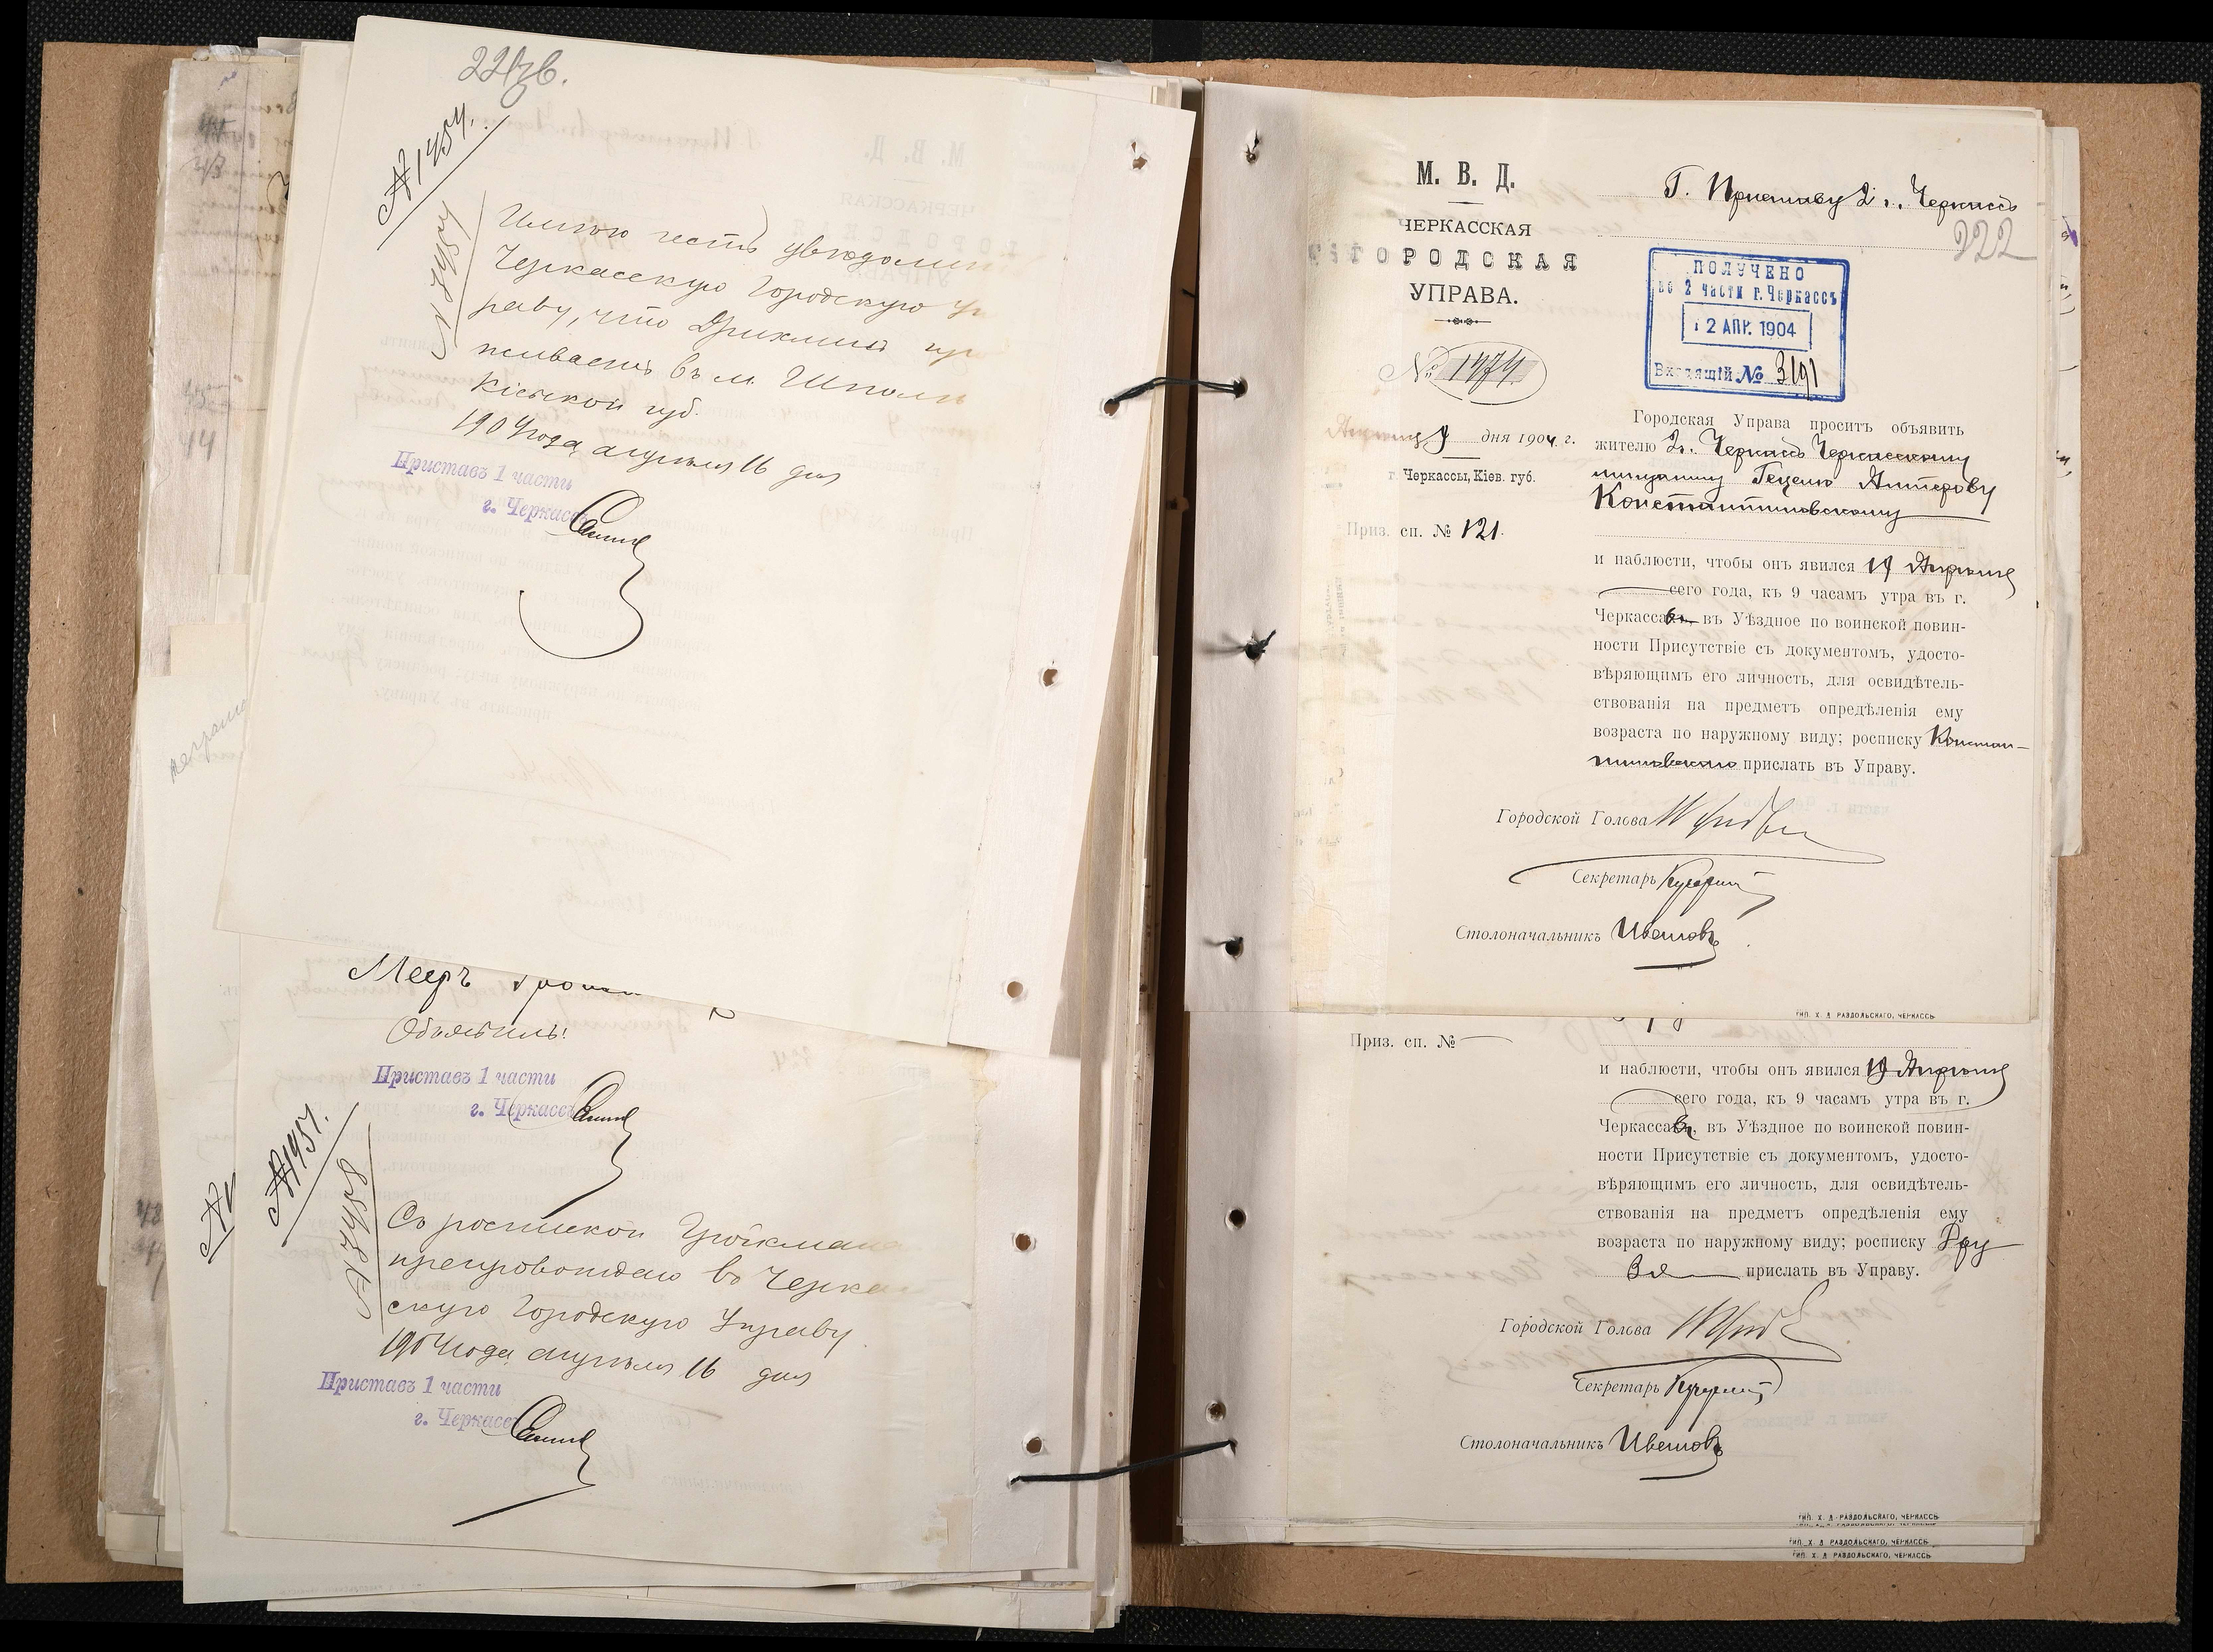 № 1454.
Имѣю честь увѣдомить
Черкасскую Городскую Уп
раву, что
живаетъ въ м. Шполѣ
Кіевской губ.
1904 года апрѣля 16 дня
Приставъ 1 части
г. Черкассъ
Мееръ
Объявилъ!
Приставъ 1 части
г. Черкассъ
№ 1451.
Съ роспиской Гройсмана
препровождаю въ Черкас
скую Городскую Управу
1904 года апрѣля 16 дня
Приставъ 1 части
г. Черкассъ
М. В. Д.
ЧЕРКАССКАЯ
ГОРОДСКАЯ
УПРАВА.
№ 1474
Апрѣля 9 дня 1904 г.
г. Черкассы, Кіев. губ.
Приз. сп. № 121.
Г. Приставу 2 ч. г. Черкассъ
222
ПОЛУЧЕНО
во 2 части г. Черкассъ
12 АПР. 1904
Входящій № 3191
Городская Управа проситъ объявить
жителю г. Черкассъ Черкасскому
мещанину Гецелю
Константиновскому
и наблюсти, чтобы онъ явился 19 Апрѣля
сего года, къ 9 часамъ утра въ г.
Черкассахъ въ Уѣздное по воинской повин-
ности Присутствіе съ документомъ, удосто-
вѣряющимъ его личность, для освидѣтель-
ствованія на предметъ опредѣленія ему
возраста по наружному виду; росписку Констан-
тиновскаго прислать въ Управу.
Городской Голова
Секретарь
Столоначальникъ Ивановъ
ТИП. Х. Д. РАЗДОЛЬСКАГО, ЧЕРКАССЬ
Приз. сп. №
и наблюсти, чтобы онъ явился 19 Апрѣля
сего года, къ 9 часамъ утра въ г.
Черкассахъ, въ Уѣздное по воинской повин-
ности Присутствіе съ документомъ, удосто-
вѣряющимъ его личность, для освидѣтель-
ствованія на предметъ опредѣленія ему
возраста по наружному виду; росписку
прислать въ Управу.
Городской Голова
Секретарь
Столоначальникъ Ивановъ
ТИП. Х. Д. РАЗДОЛЬСКАГО, ЧЕРКАССЬ
ТИП. Х. Д. РАЗДОЛЬСКАГО, ЧЕРКАССЬ
ТИП. Х. Д. РАЗДОЛЬСКАГО, ЧЕРКАССЬ